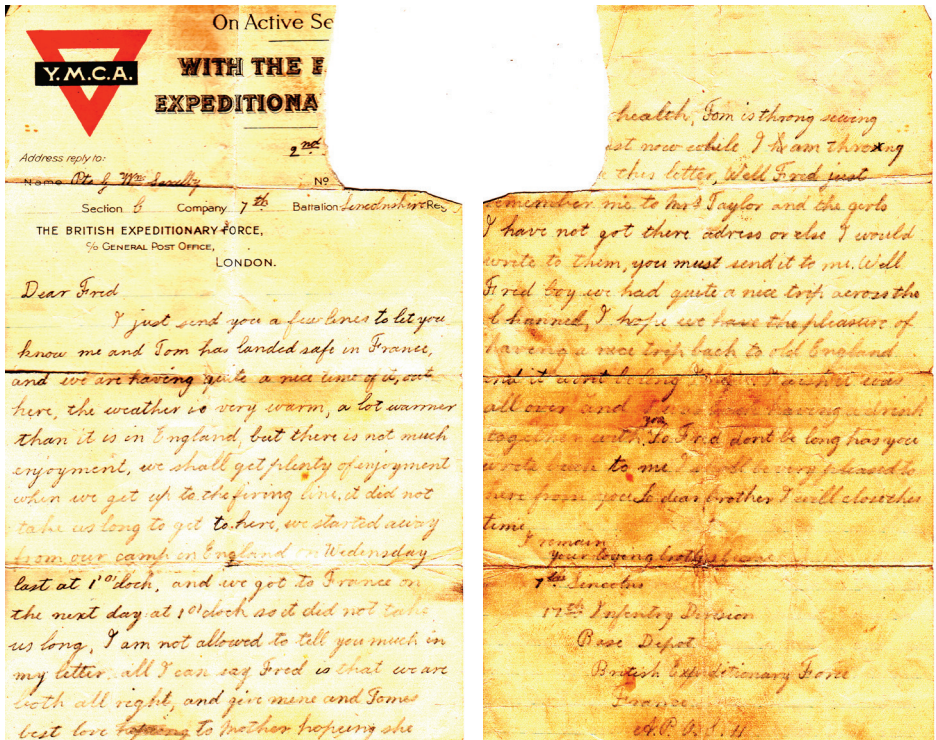 On Active Se
Y.M.C.A.
WITH THE
EXPEDITIONA
2nd
Address reply to:
Name Pte G Wm No
Section C Company 7th Battalion Lincolnshire Reg
THE BRITISH EXPEDITIONARY FORCE,
c/o GENERAL POST OFFICE,
LONDON.
Dear Fred
I just send you a few lines to let you
know me and Tom has landed safe in France,
and we are having quite a nice time of it, out
here, the weather is very warm, a lot warmer
than it is in England, but there is not much
enjoyment, we shall get plenty of enjoyment
when we get up to the firing line, it did not
take us long to get to here, we started away
from our camp in England on Wednesday
last at 1 o'clock, and we got to France on
the next day at 1 o'clock so it did not take
us long, I am not allowed to tell you much in
my letter all I can say Fred is that we are
both all right, and give mine and Tomes
best love to Mother hopeing she
health, Tom is throng sewing
just now while I am throng
this letter, Well Fred just
remember me to Mrs Taylor and the girls
I have not got there adress or else I would
wrote to them, you must send it to me. Well
Fred boy we had quite a nice trip across the
Channel, I hope we have the pleasure of
having a nice trip back to old England
and it aint being I wish it was
all over and having a drink
together with you So Fred dont be long has you
wrote back to me I shall be very pleased to
here from you So dear brother I will close this
time
I remain
your loving brother
7th Lincolns
17th Infentry Division
Base Depot
British Expeditionary Force
France
A.P.O.S. 4